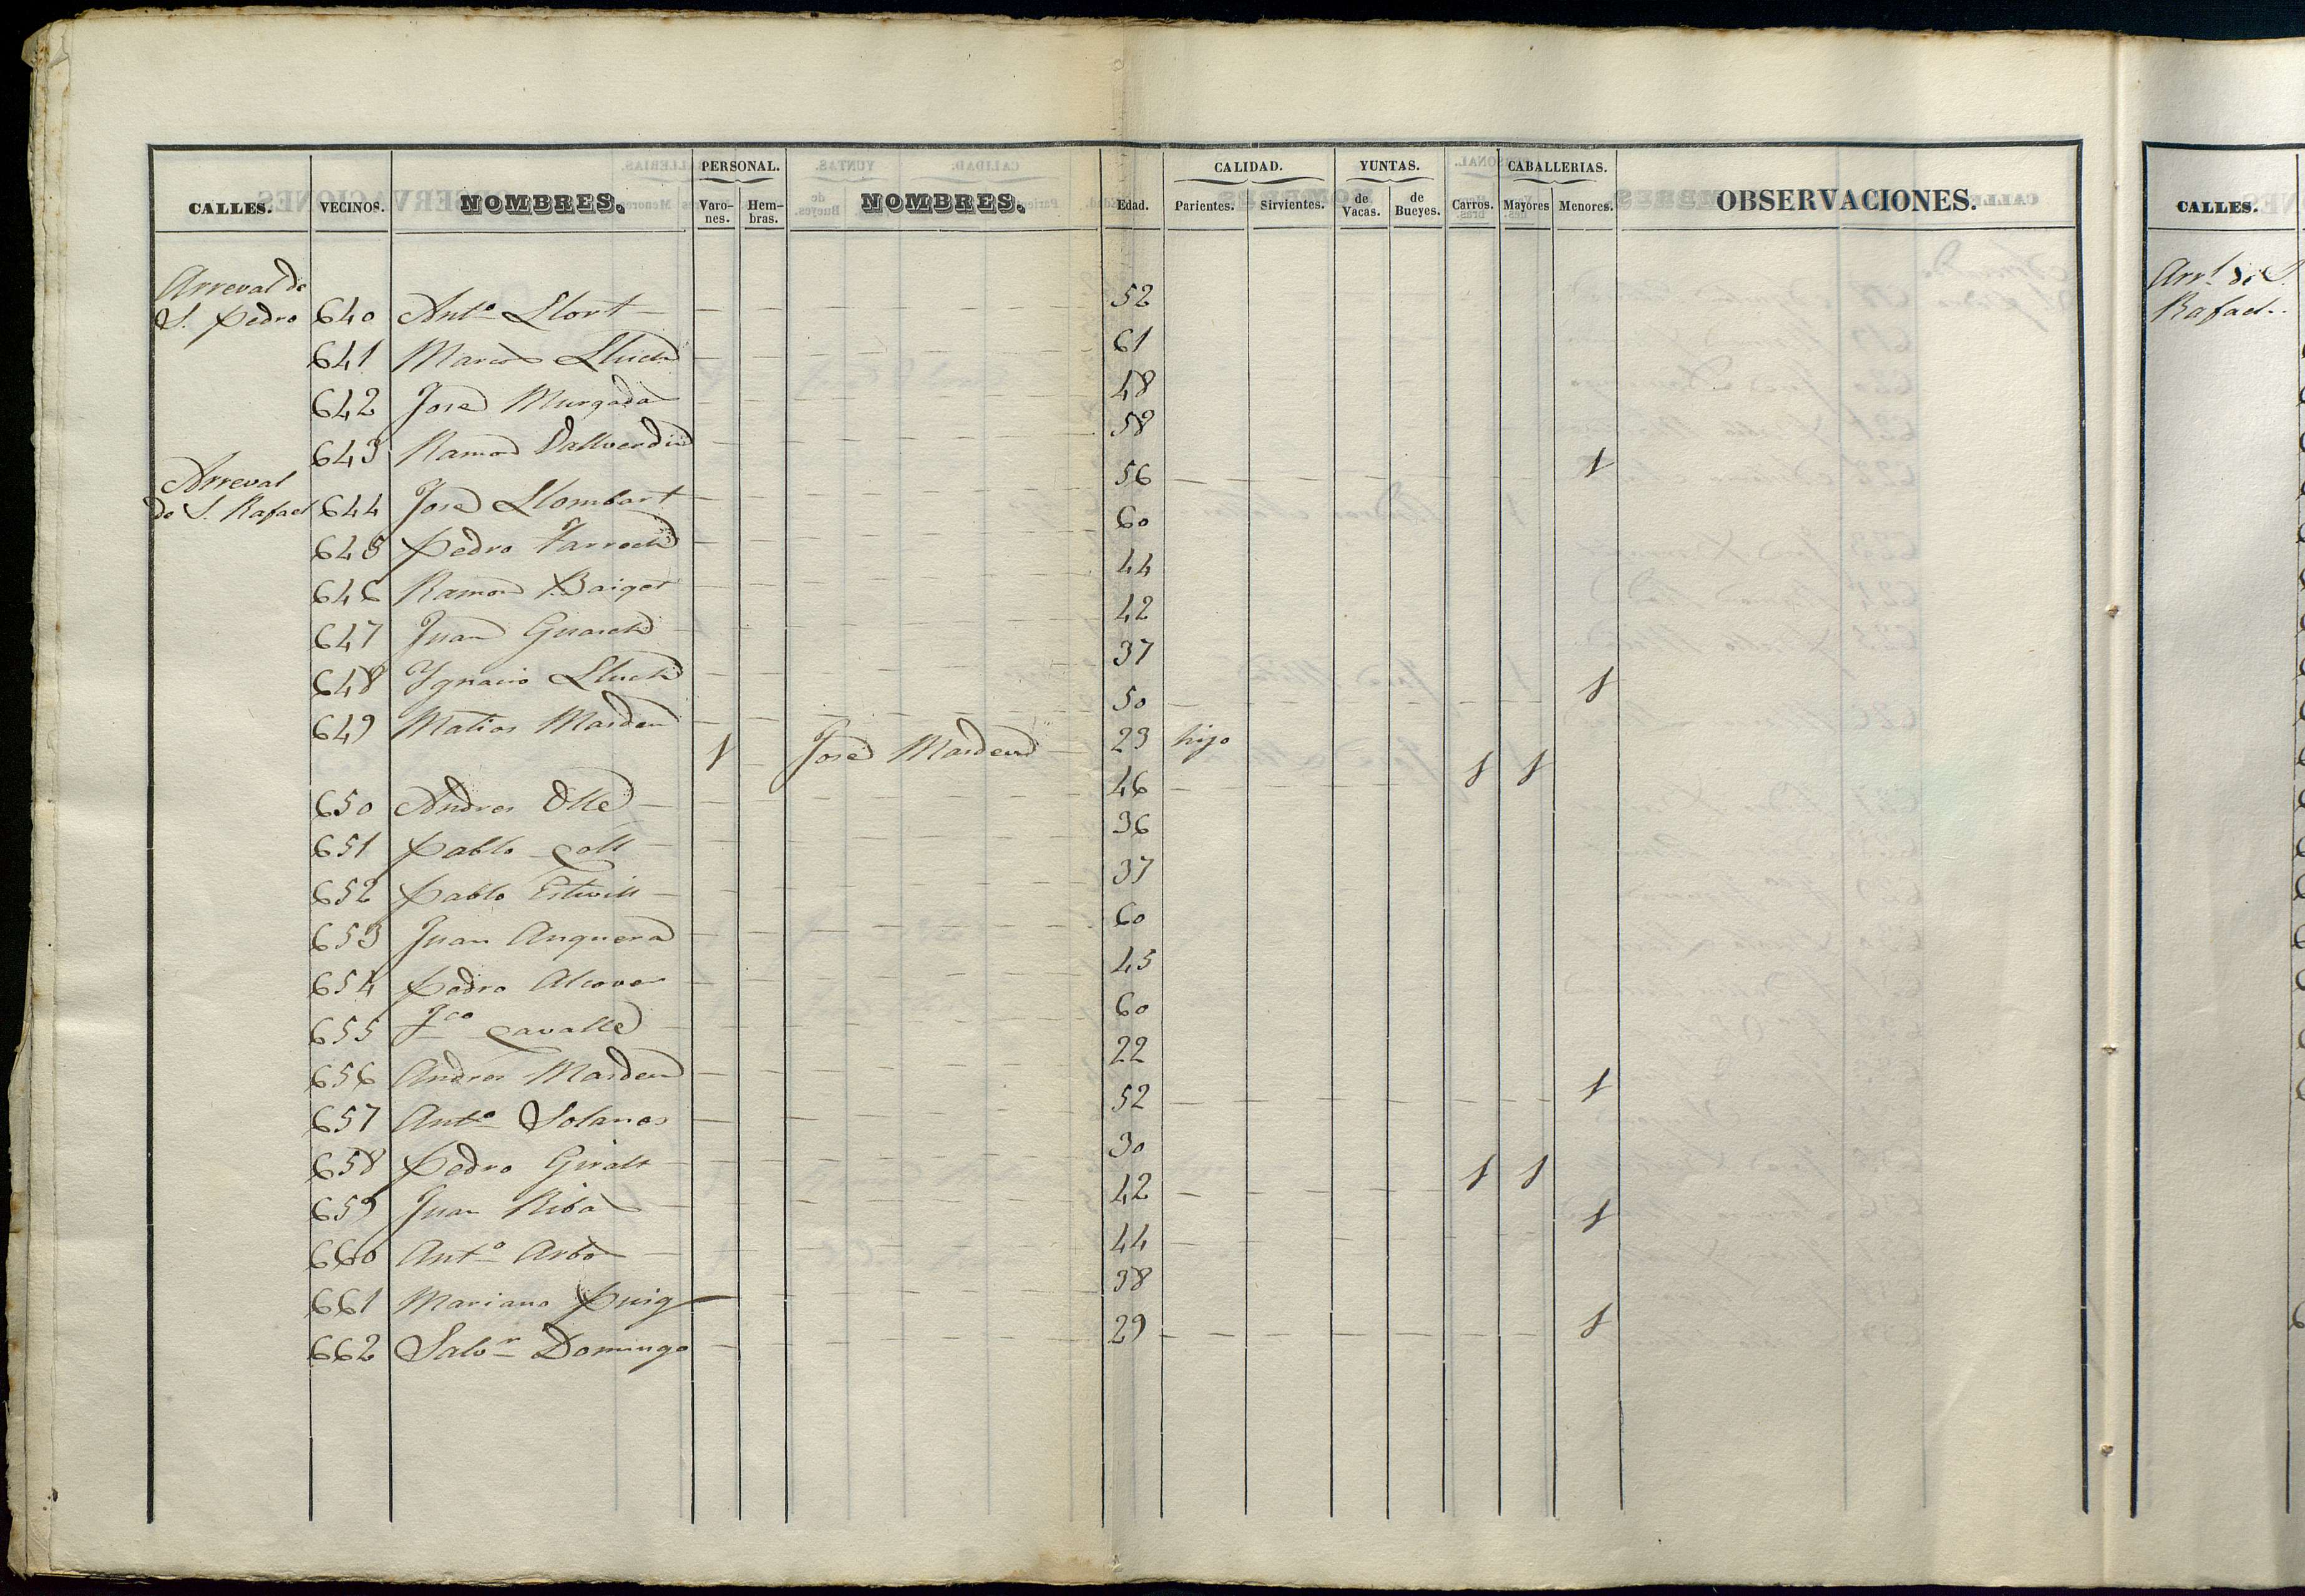 CALLES. VECINOS. NOMBRES. PERSONAL. Varones. Hembras. NOMBRES. Edad. CALIDAD. Parientes. Sirvientes. YUNTAS. de Vacas. de Bueyes. Carros. CABALLERIAS. Mayores Menores. OBSERVACIONES.
Arreval de
S. Pedro 640 Antº Llort 52
641 Marcos Lluch 61
642 Jose Murgada 48
643 Ramon Vallverdu 58
Arreval
de S. Rafael 644 Jose Llombart 56 1
645 Pedro Tarroch 60
646 Ramon Baiget 44
647 Juan Guasch 42
648 Ygnacio Lluch 37
649 Matias Masdeu 50 1
1 Jose Masdeu 23 hijo
650 Andres Olle 46 1 1
651 Pablo Coll 36
652 Pablo Estivill 37
653 Juan Anguera 60
654 Pedro Alcover 45
655 Fco Cavalle 60
656 Andres Masdeu 22
657 Antº Solanes 52 1
658 Pedro Giralt 30
659 Juan Riba 42 1 1
660 Antº Arbo 44 1
661 Mariano Puig 38
662 Salvr Domingo 29 1
CALLES.
Arrl de S.
Rafael.